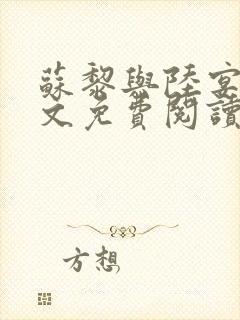 蘇黎與陸宴
文免費閱讀
方想